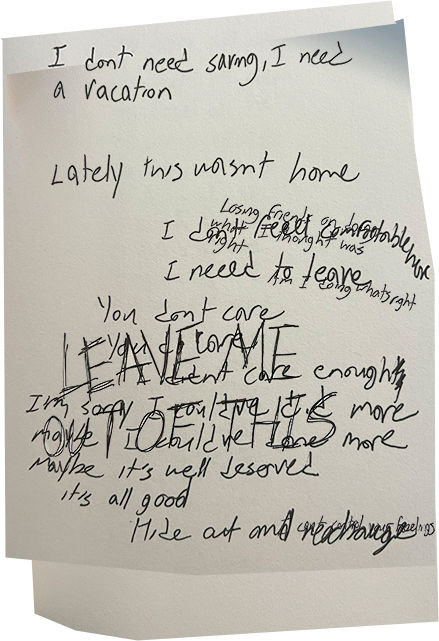 I dont need saving, I need
a vacation
Lately this wasnt home
Losing friends
what I thought was
right
I dont feel comfortable here
I neeed to leave
Am I doing whats right
You dont care
You do care
LEAVE ME
I didnt care enough
I'm sorry I could've did more
OUT OF THIS
Maybe I could've done more
Maybe it's well deserved
it's all good
Hide out and recharge
I cant control your feelings